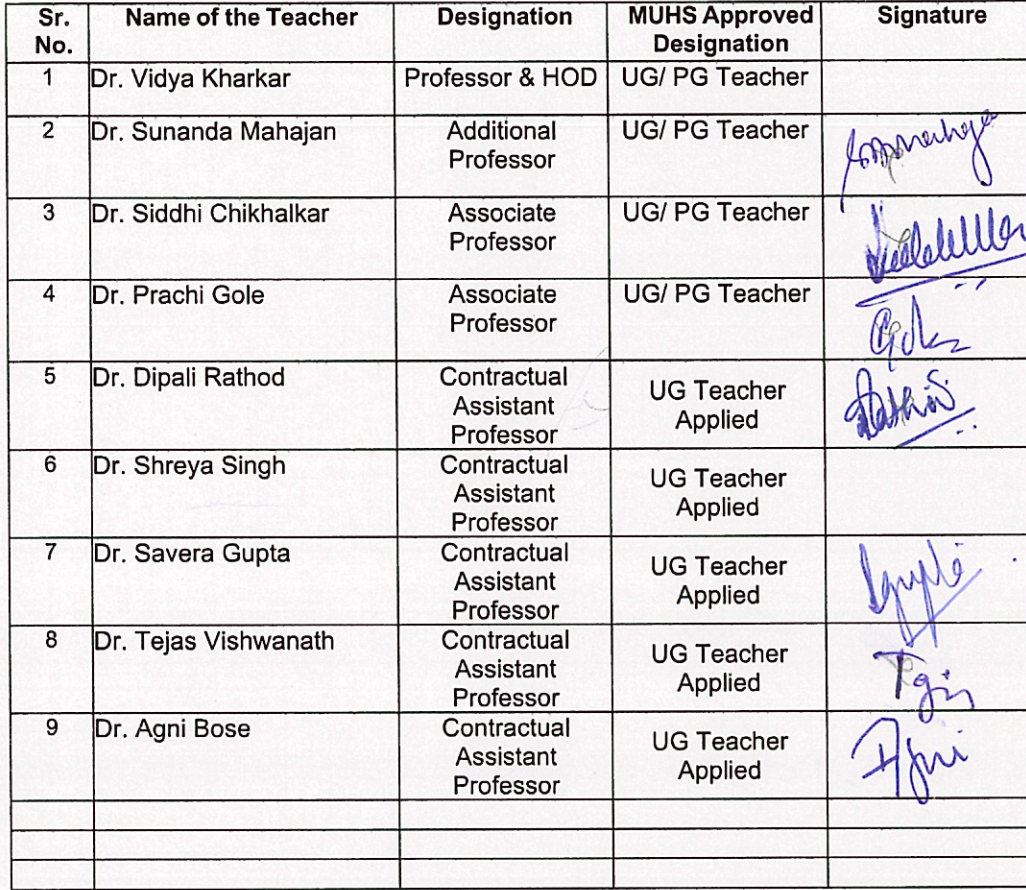 Sr. No. Name of the Teacher Designation MUHS Approved Designation Signature
1 Dr. Vidya Kharkar Professor & HOD UG/ PG Teacher
2 Dr. Sunanda Mahajan Additional Professor UG/ PG Teacher
3 Dr. Siddhi Chikhalkar Associate Professor UG/ PG Teacher
4 Dr. Prachi Gole Associate Professor UG/ PG Teacher
5 Dr. Dipali Rathod Contractual Assistant Professor UG Teacher Applied
6 Dr. Shreya Singh Contractual Assistant Professor UG Teacher Applied
7 Dr. Savera Gupta Contractual Assistant Professor UG Teacher Applied
8 Dr. Tejas Vishwanath Contractual Assistant Professor UG Teacher Applied
9 Dr. Agni Bose Contractual Assistant Professor UG Teacher Applied Agni